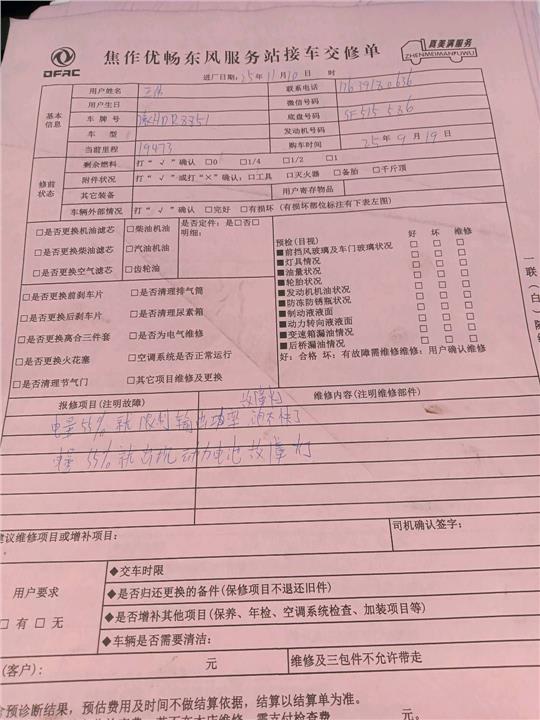 DFAC
焦作优畅东风服务站接车交修单
真美满服务
ZHENMEIMANFUWU
进厂日期: 25年11月10日 时
基本信息
用户姓名 联系电话
用户生日 微信号码
车牌号 底盘号码 SF515536
车型 发动机号码
当前里程 19473 购车时间 25年9月19日
修前状态
剩余燃料 打“√”确认 □0 □1/4 □1/2 □1
附件状况 打“√”或打“×”确认: □工具 □灭火器 □备胎 □千斤顶
其它装备 用户寄存物品
车辆外部情况 打“√”确认 □完好 □有损坏 (有损坏部位标注有下表左图)
□是否更换机油滤芯 □柴油机油 是否定件: 是□否□
明细:
□是否更换柴油滤芯 □汽油机油
□是否更换空气滤芯 □齿轮油
□是否更换前刹车片 □是否清理排气筒
□是否更换后刹车片 □是否清理尿素箱
□是否更换离合三件套 □是否为电气维修
□是否更换火花塞 □空调系统是否正常运行
□是否清理节气门 □其它项目维修及更换
预检(目视) 好 坏 维修
■前挡风玻璃及车门玻璃状况 □ □ □
■灯具情况 □ □ □
■油量状况 □ □ □
■轮胎状况 □ □ □
■发动机机油状况 □ □ □
■防冻防锈瓶状况 □ □ □
■制动液液面 □ □ □
■动力转向液液面 □ □ □
■变速箱漏油情况 □ □ □
■后桥漏油情况 □ □ □
好: 合格 坏: 有故障需维修维修: 用户确认维修
一联(白)
报修项目(注明故障) 维修内容(注明维修部件)
故障灯
电量55%就限制输出功率 跑不快了
电量55%就出现动力电池故障灯
建议维修项目或增补项目:
司机确认签字:
用户要求
□有□无
◆交车时限
◆是否归还更换的备件(保修项目不退还旧件)
◆是否增补其他项目(保养、年检、空调系统检查、加装项目等)
◆车辆是否需要清洁:
(客户): 元 维修及三包件不允许带走
预诊断结果, 预估费用及时间不做结算依据, 结算以结算单为准。
元。